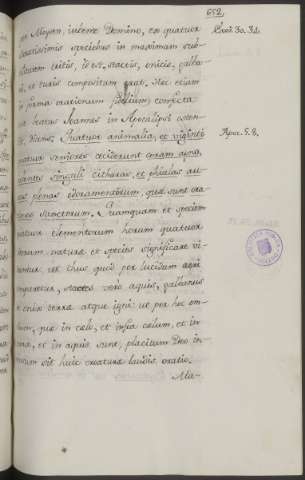 652.
per Moysen, iubente Domino, ex quatuor
Exod. 30. 34.
speciebus in maximam sub-
tilitatem tritis, id est, stactes, onicis, galba-
ni, et turis compositum erat. Hoc etiam
in forma orationum fidelium confecta
Beatus Ioannes in Apocalipsi osten-
dit, dicens: Quatuor animalia, et viginti
Apoc. 5. 8.
quatuor seniores ceciderunt coram agno,
habentes singuli citharas, et phialas au-
reas plenas odoramentorum, quae sunt ora-
tiones sanctorum. Quamquam et species
quatuor elementorum horum quatuor
naturae et species significare vi-
dentur, ut thus quod per lucidum aeri
comparetur, stactes vero aquis, galbanus
et onix terrae atque igni: ut per haec om-
nium, quae in caelo, et infra caelum, et in
terra, et in aquis sunt, placitum Deo in-
censum sit huic creaturae laudis oratio.